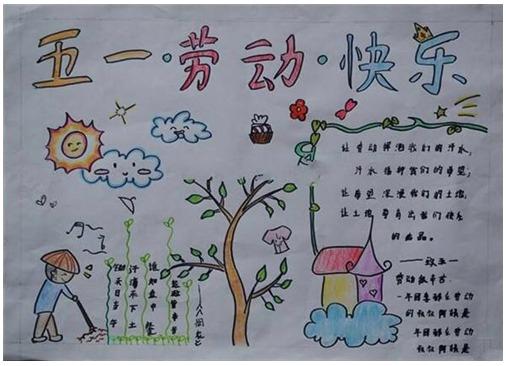 五一·劳动·快乐
让劳动挥洒我们的汗水,
汗水播种我们的希望,
让希望浸我们的土壤,
让土壤孕育出我们快乐
的
劳动
一年四季都在劳动
的阿姨是
一年四季都在劳动
的阿姨是
禾日当午
汗滴禾下土
谁知盘中餐
粒粒皆辛苦